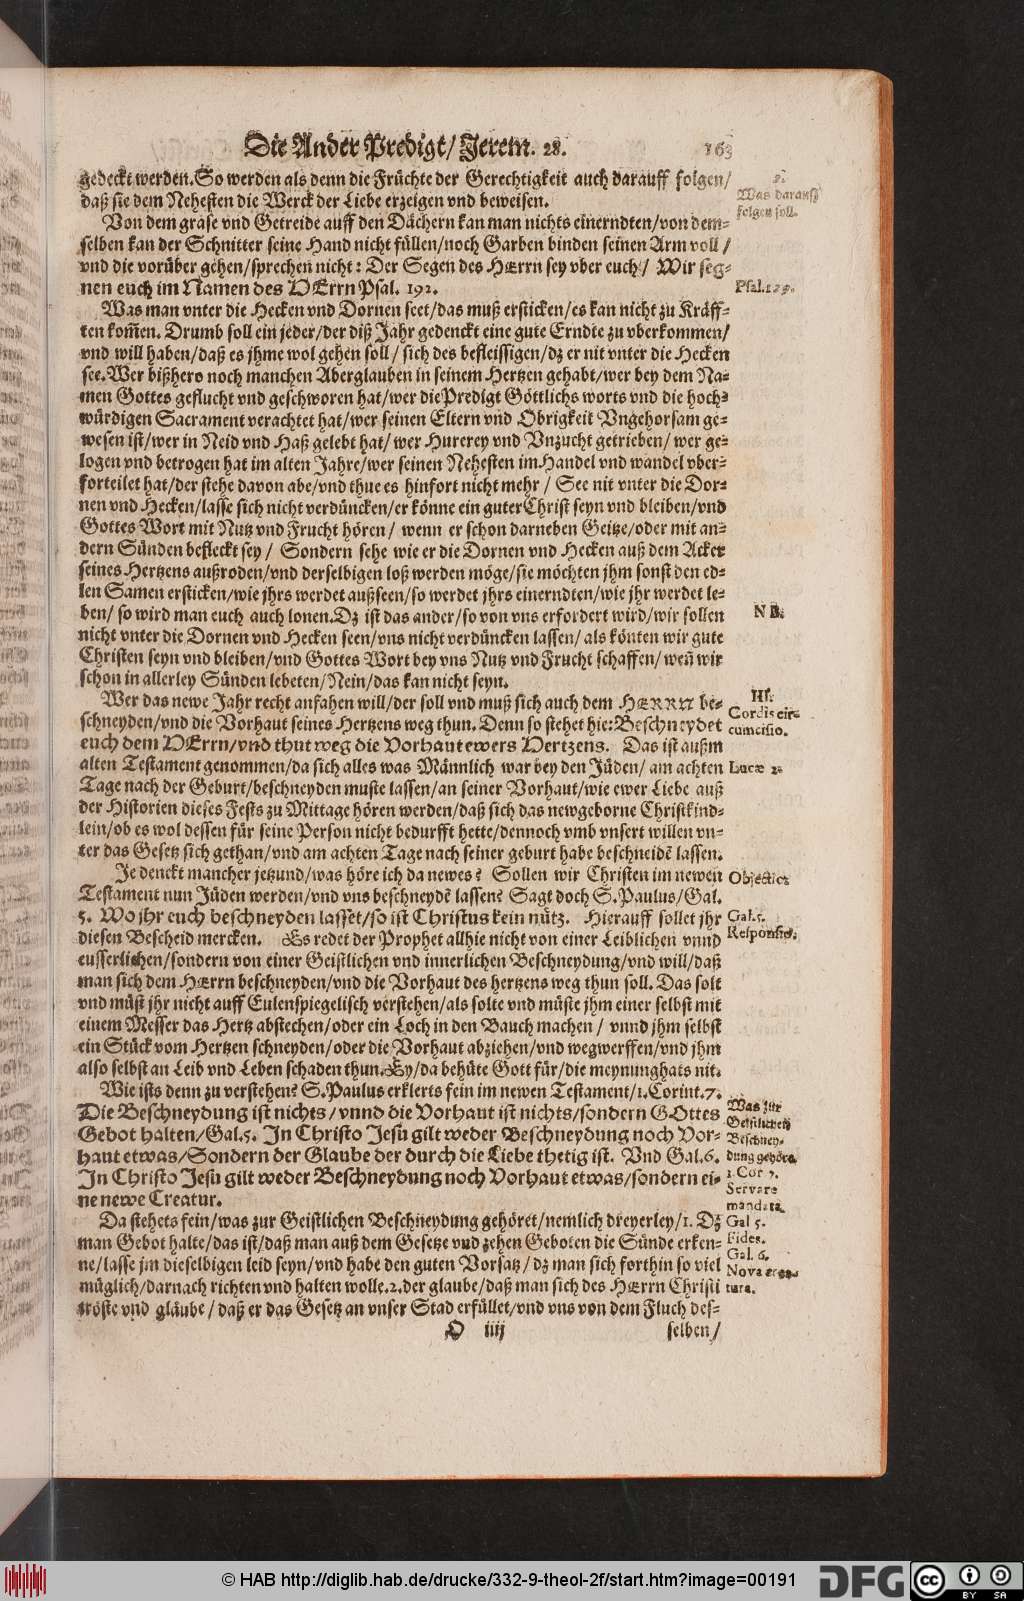 Die Ander Predigt/ Jerem. 28. 163
gedeckt werden. So werden als denn die Früchte der Gerechtigkeit auch darauff folgen/
daß sie dem Nehesten die Werck der Liebe erzeigen vnd beweisen.
Was darauß
folgen soll.
Von dem grase vnd Getreide auff den Dächern kan man nichts einerndten/von dem-
selben kan der Schnitter seine Hand nicht füllen/noch Garben binden seinen Arm voll/
vnd die vorüber gehen/sprechen nicht: Der Segen des HErrn sey vber euch/ Wir seg-
nen euch im Namen des HErrn Psal. 192.
Psal.129.
Was man vnter die Hecken vnd Dornen seet/das muß ersticken/es kan nicht zu Kräff-
ten kom̃en. Drumb soll ein jeder/der diß Jahr gedenckt eine gute Erndte zu vberkommen/
vnd will haben/daß es jhme wol gehen soll/ sich des befleissigen/dz er nit vnter die Hecken
see. Wer bißhero noch manchen Aberglauben in seinem Hertzen gehabt/wer bey dem Na-
men Gottes geflucht vnd geschworen hat/wer die Predigt Göttlichs worts vnd die hoch-
würdigen Sacrament verachtet hat/wer seinen Eltern vnd Obrigkeit Vngehorsam ge-
wesen ist/wer in Neid vnd Haß gelebt hat/ wer Hurerey vnd Vnzucht getrieben/ wer ge-
logen vnd betrogen hat im alten Jahre/wer seinen Nehesten im Handel vnd wandel vber-
forteilet hat/der stehe davon abe/vnd thue es hinfort nicht mehr/ See nit vnter die Dor-
nen vnd Hecken/lasse sich nicht verdüncken/er könne ein guter Christ seyn vnd bleiben/vnd
Gottes Wort mit Nutz vnd Frucht hören/ wenn er schon darneben Geitze/oder mit an-
dern Sünden befleckt sey/ Sondern sehe wie er die Dornen vnd Hecken auß dem Acker
seines Hertzens außroden/vnd derselbigen loß werden möge/sie möchten jhm sonst den ed-
len Samen ersticken/wie jhrs werdet außseen/so werdet jhrs einerndten/wie jhr werdet le-
ben/ so wird man euch auch lonen. Dz ist das ander/so von vns erfordert wird/wir sollen
NB.
nicht vnter die Dornen vnd Hecken seen/vns nicht verdüncken lassen/ als könten wir gute
Christen seyn vnd bleiben/vnd Gottes Wort bey vns Nutz vnd Frucht schaffen/ weñ wir
schon in allerley Sünden lebeten/Nein/das kan nicht seyn.
Wer das newe Jahr recht anfahen will/der soll vnd muß sich auch dem HERRN be-
schneyden/vnd die Vorhaut seines Hertzens weg thun. Denn so stehet hie: Beschneydet
euch dem HErrn/vnd thut weg die Vorhaut ewers Hertzens. Das ist außm
Cordis cir-
cumcisio.
alten Testament genommen/da sich alles was Männlich war bey den Jüden/ am achten
Lucæ 2.
Tage nach der Geburt/beschneyden muste lassen/an seiner Vorhaut/wie ewer Liebe auß
der Historien dieses Fests zu Mittage hören werden/daß sich das newgeborne Christkind-
lein/ob es wol dessen für seine Person nicht bedurfft hette/dennoch vmb vnsert willen vn-
ter das Gesetz sich gethan/vnd am achten Tage nach seiner geburt habe beschneidē lassen.
Je denckt mancher jetzund/was höre ich da newes? Sollen wir Christen im newen
Objectio.
Testament nun Jüden werden/vnd vns beschneydē lassen? Sagt doch S. Paulus/Gal.
5. Wo jhr euch beschneyden lasset/so ist Christus kein nütz. Hierauff sollet jhr
Gal.5.
diesen Bescheid mercken. Es redet der Prophet allhie nicht von einer Leiblichen vnnd
Responsio.
eusserlichen/sondern von einer Geistlichen vnd innerlichen Beschneydung/vnd will/daß
man sich dem HErrn beschneyden/vnd die Vorhaut des hertzens weg thun soll. Das solt
vnd müst jhr nicht auff Eulenspiegelisch verstehen/als solte vnd müste jhm einer selbst mit
einem Messer das Hertz abstechen/oder ein Loch in den Bauch machen/ vnnd jhm selbst
ein Stück vom Hertzen schneyden/oder die Vorhaut abziehen/vnd wegwerffen/vnd jhm
also selbst an Leib vnd Leben schaden thun. Ey/da behüte Gott für/die meynung hats nit.
Wie ists denn zu verstehen? S. Paulus erklerts fein im newen Testament/1. Corint. 7.
Die Beschneydung ist nichts/ vnnd die Vorhaut ist nichts/sondern GOttes
Gebot halten/Gal. 5. In Christo Jesu gilt weder Beschneydung noch Vor-
haut etwas/Sondern der Glaube der durch die Liebe thetig ist. Vnd Gal. 6.
In Christo Jesu gilt weder Beschneydung noch Vorhaut etwas/sondern ei-
ne newe Creatur.
Was zur
Geistlichen
Beschney-
dung gehöre.
1.Cor 7.
Servare
mandata.
Da stehets fein/was zur Geistlichen Beschneydung gehöret/nemlich dreyerley/1. Dz
man Gebot halte/das ist/daß man auß dem Gesetze vnd zehen Geboten die Sünde erken-
ne/lasse jm dieselbigen leid seyn/vnd habe den guten Vorsatz/ dz man sich forthin so viel
müglich/darnach richten vnd halten wolle. 2. der glaube/daß man sich des HErrn Christi
tröste vnd gläube/ daß er das Gesetz an vnser Stad erfüllet/vnd vns von dem Fluch des-
Gal 5.
Fides.
Gal. 6.
Nova crea-
tura.
O iiij selben/
© HAB http://diglib.hab.de/drucke/332-9-theol-2f/start.htm?image=00191
DFG
cc BY SA